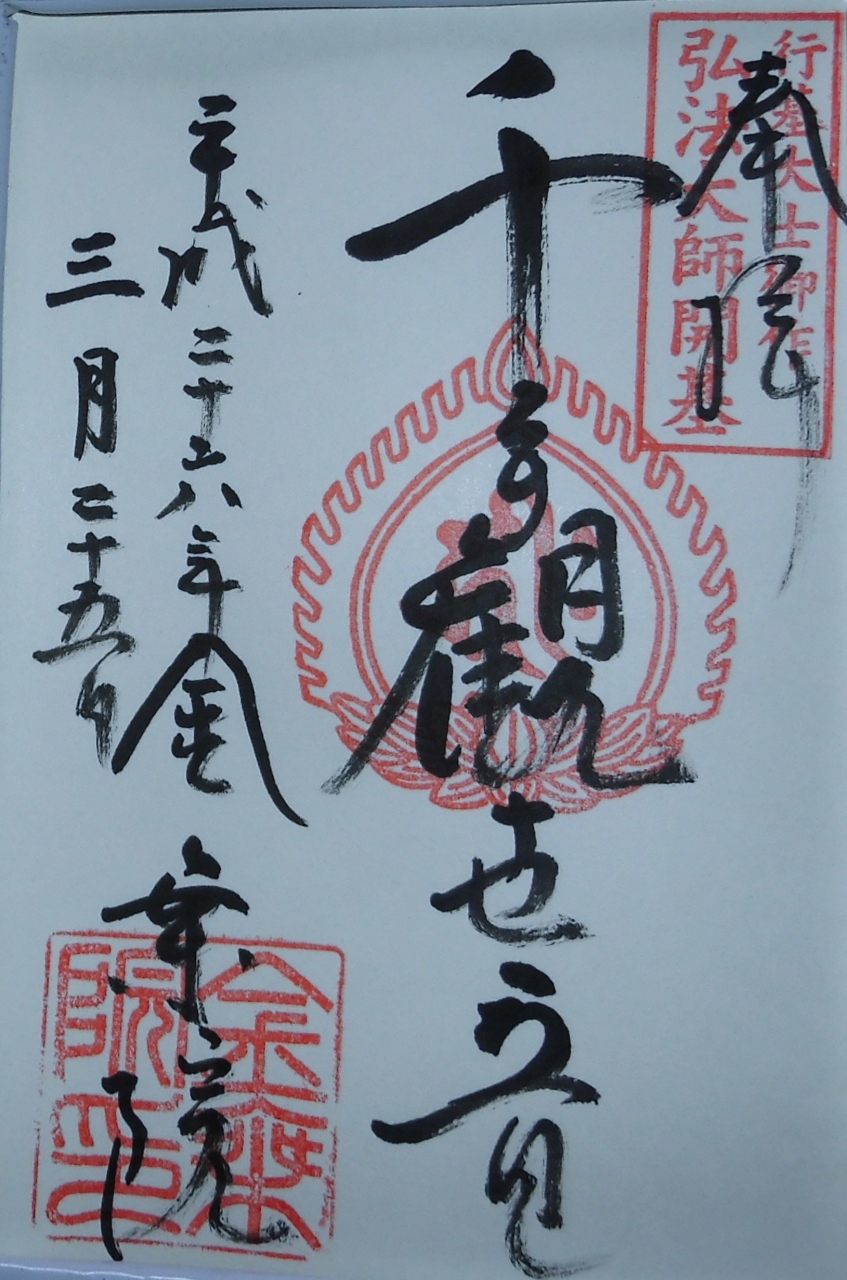 奉拝
行基大士御作
弘法大師開基
千手觀世音
平成二十六年
三月二十五日
金乗院
金乗院印